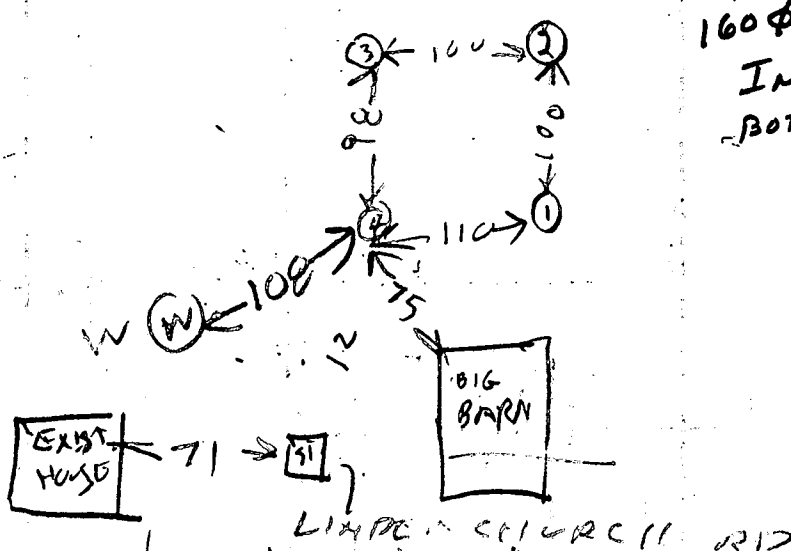 160
3 100 2
98
100
4 110 1
108
75
W W
BIG
BARN
EXIST
HOUSE
71
ST
CHURCH RD